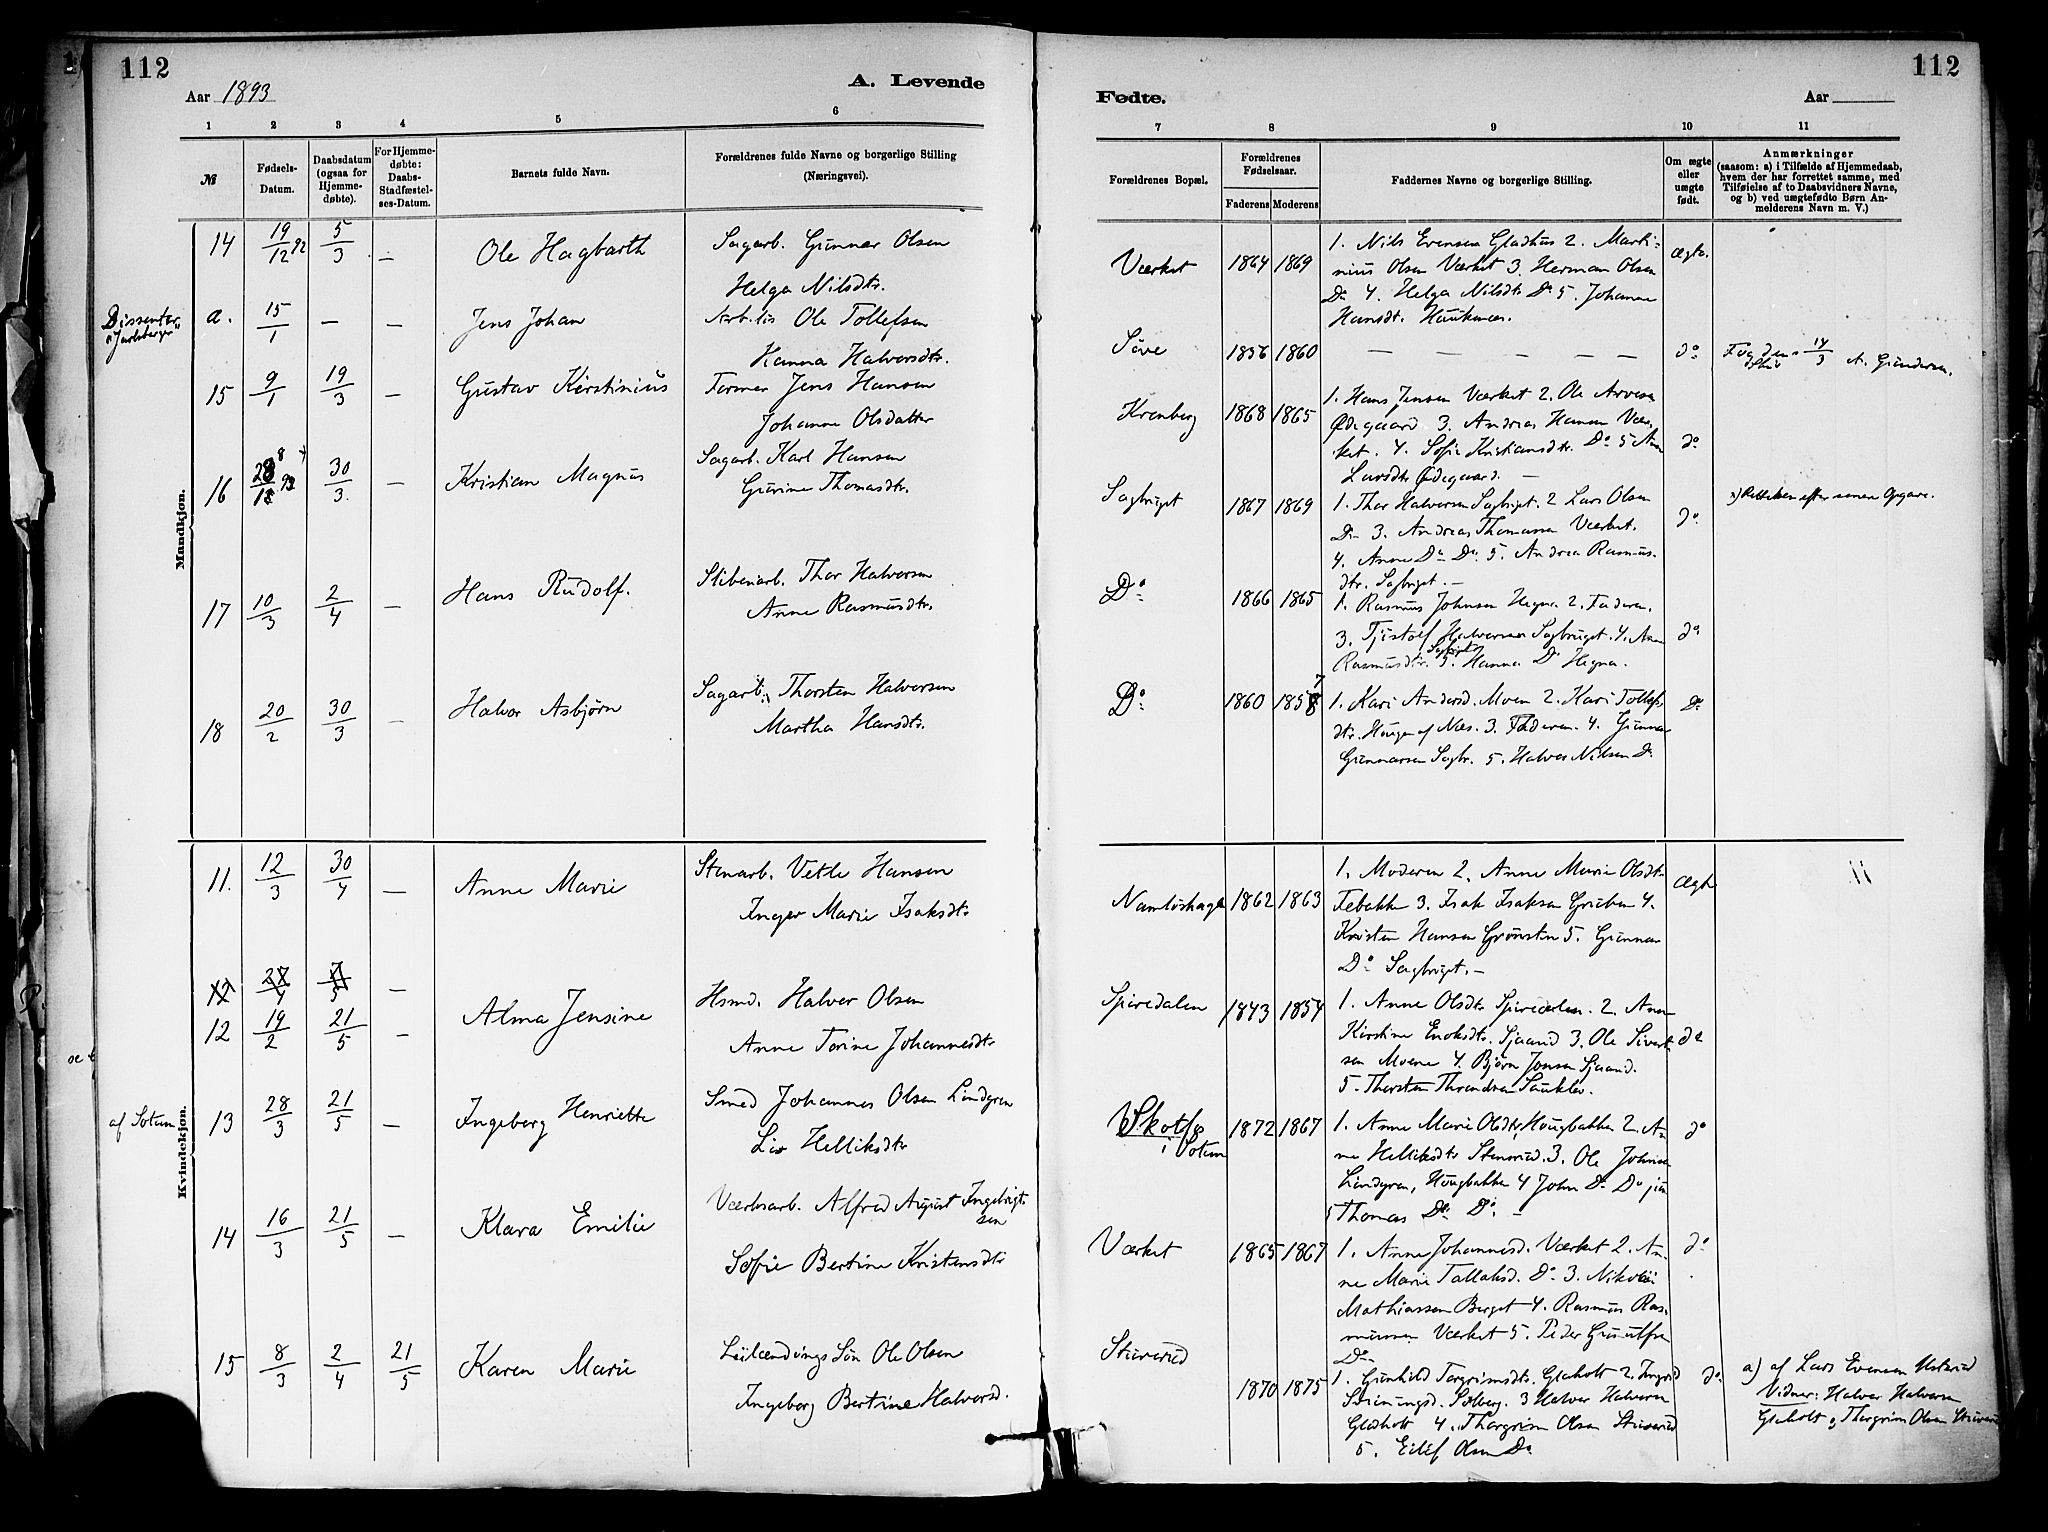 112
Aar 1893
A. Levende
1 2 3 4 5 6
№
Fødsels-Datum.
Daabsdatum (ogsaa for Hjemmedøbte).
For Hjemmedøbte: Daabs-Stadfæstelses-Datum.
Barnets fulde Navn.
Forældrenes fulde Navne og borgerlige Stilling
(Næringsvei).
Mandkjøn.
14 19/12 92 5/3 — Ole Hagbarth Sagarb. Gunnar Olsen
Helga Nilsdtr.
Dissenter
a. 15/1 — — Jens Johan Ole Tollefsen
Hanna Halvorsdtr.
15 9/1 19/3 — Gustav Kirstinius Former Jens Hansen
Johanne Olsdatter
16 30/3 — Kristian Magnus Sagarb. Karl Hansen
Gurine Thomasdtr.
17 10/3 2/4 — Hans Rudolf. Sliberiarb. Thor Halvorsen
Anne Rasmusdtr.
18 20/2 30/3 — Halvor Asbjørn Sagarb. Thorsten Halvorsen
Martha Hansdtr.
Kvindekjøn.
11. 12/3 30/4 — Anne Marie Stenarb. Vetle Hansen
Inger Marie Isaksdtr
12 27/4 7/5 —
12 19/2 21/5 — Alma Jensine Hsmd. Halvor Olsen
Anne Torine Johannesdtr
af Sotum
13 28/3 21/5 — Ingeborg Henriette Smed Johannes Olsen Lindgren
Liv Helliksdtr
14 16/3 21/5 — Klara Emilie Værksarb. Alfred August Ingebrigtsen
Sofie Bertine Kristensdtr
15 8/3 2/4 21/5 Karen Marie Leilændings Søn Ole Olsen
Ingeborg Bertine Halvorsd.
112
Fødte.
Aar
7 8 9 10 11
Forældrenes Bopæl.
Forældrenes Fødselsaar.
Faderens Moderens
Faddernes Navne og borgerlige Stilling.
Om ægte eller uægte født.
Anmærkninger
(saasom: a) i Tilfælde af Hjemmedaab,
hvem der har forrettet samme, med
Tilføielse af to Daabsvidners Navne,
og b) ved uægtefødte Børn Anmelderens Navn m. V.)
Værket 1864 1869 1. Nils Evensen Gladhus 2. Marti- Ægte.
nius Olsen Værket 3. Herman Olsen
Do 4. Helga Nilsdtr Do 5. Johanne
Hansdt. Haukenæs.
Søve 1856 1860 — — — — — — do
14/3 A. Gundersen.
Krenberg 1868 1865 1. Hans Jensen Værket 2. Ole Arvesen
Ødegaard 3. Andreas Hansen Vær-
ket. 4. Sofie Kristiansdtr. Do 5 Ann do
Larsdtr Ødegaard. —
Sagbruget 1867 1869 1. Thor Halvorsen Sagbruget. 2 Lars Olsen do
x) Rettelsen efter senere Opgave.
Do 3. Andreas Thomassen Værket.
4. Anne Do Do. 5. Andrea Rasmus-
dtr. Sagbruget. —
Do 1866 1865 1. Rasmus Johnsen Hegna 2. Faderen.
3. Tjøstolf Halvorsen Sagbruget. 4. Anne do
Rasmusdtr. Sagbrget 5. Hanna Do Hegna.
Do 1860 1857 1. Kari Andersd. Moen 2. Kari Tollefs- do
dtr. Haugen af Næs. 3. Faderen. 4. Gunnar
Gunnarsen Sagbr. 5. Halvor Nilsen Do
Namløshagen 1862 1863 1. Moderen 2. Anne Marie Olsdtr Ægte
Febakke 3. Isak Isaksen Gruben 4.
Kristen Hansen Grønsten 5. Gunnar
Do Sagbruget. —
Spiredalen 1843 1854 1. Anne Olsdtr Spiredalen. 2. Anne
Kirstine Enoksdtr. Sjaand 3. Ole Sivert- do
sen Moene 4. Bjørn Jonsen Sjaand.
5. Thorsten Throndsen Saukleiv.
Skotfos
i Sotum 1872 1867 1. Anne Marie Olsdtr, Haugbakken 2. An- do
ne Helliksdtr Stensrud. 3. Ole Johnsen
Lindgren, Haugbakken 4 John Do Do jun
5 Thomas Do Do. —
Værket 1865 1867 1. Anne Johannesd. Værket 2. An- do
ne Marie Tallaksd. Do 3. Nikolai
Mathiassen Berget 4. Rasmus Ras-
mussen Værket 5. Peder Gunulfsen
Do
Stuverud 1870 1875 1. Gunhild Torgrimsdtr. Glaholt 2. Ingrid do
Steinungsd. Solberg. 3 Halvor Halvorsen
Glaholt 4. Thorgrim Olsen Stuverud
5. Eilef Olsen Do
a) af Lars Evensen
Vidner: Halvor Halvorsen
Glaholt og Thorgrim Olsen Stuverud